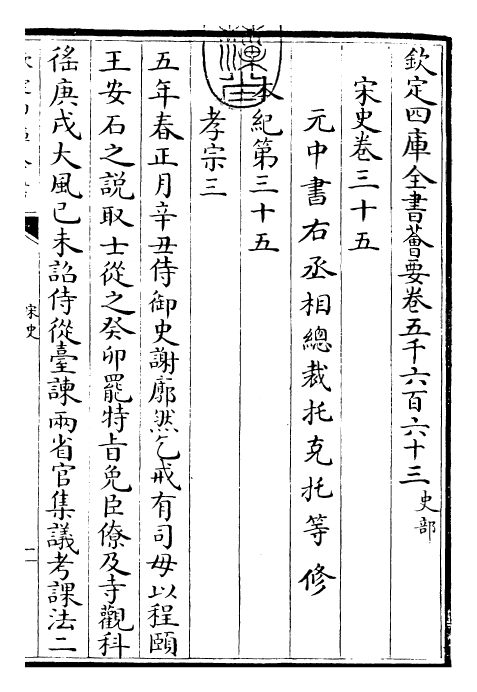 欽定四庫全書薈要卷五千六百六十三 史部
宋史卷三十五
元中書右丞相總裁托克托等修
本紀第三十五
孝宗三
五年春正月辛丑侍御史謝廓然乞戒有司毋以程頤
王安石之説取士從之癸卯罷特旨免臣僚及寺觀科
徭庚戌大風己未詔侍從臺諫兩省官集議考課法二
宋史